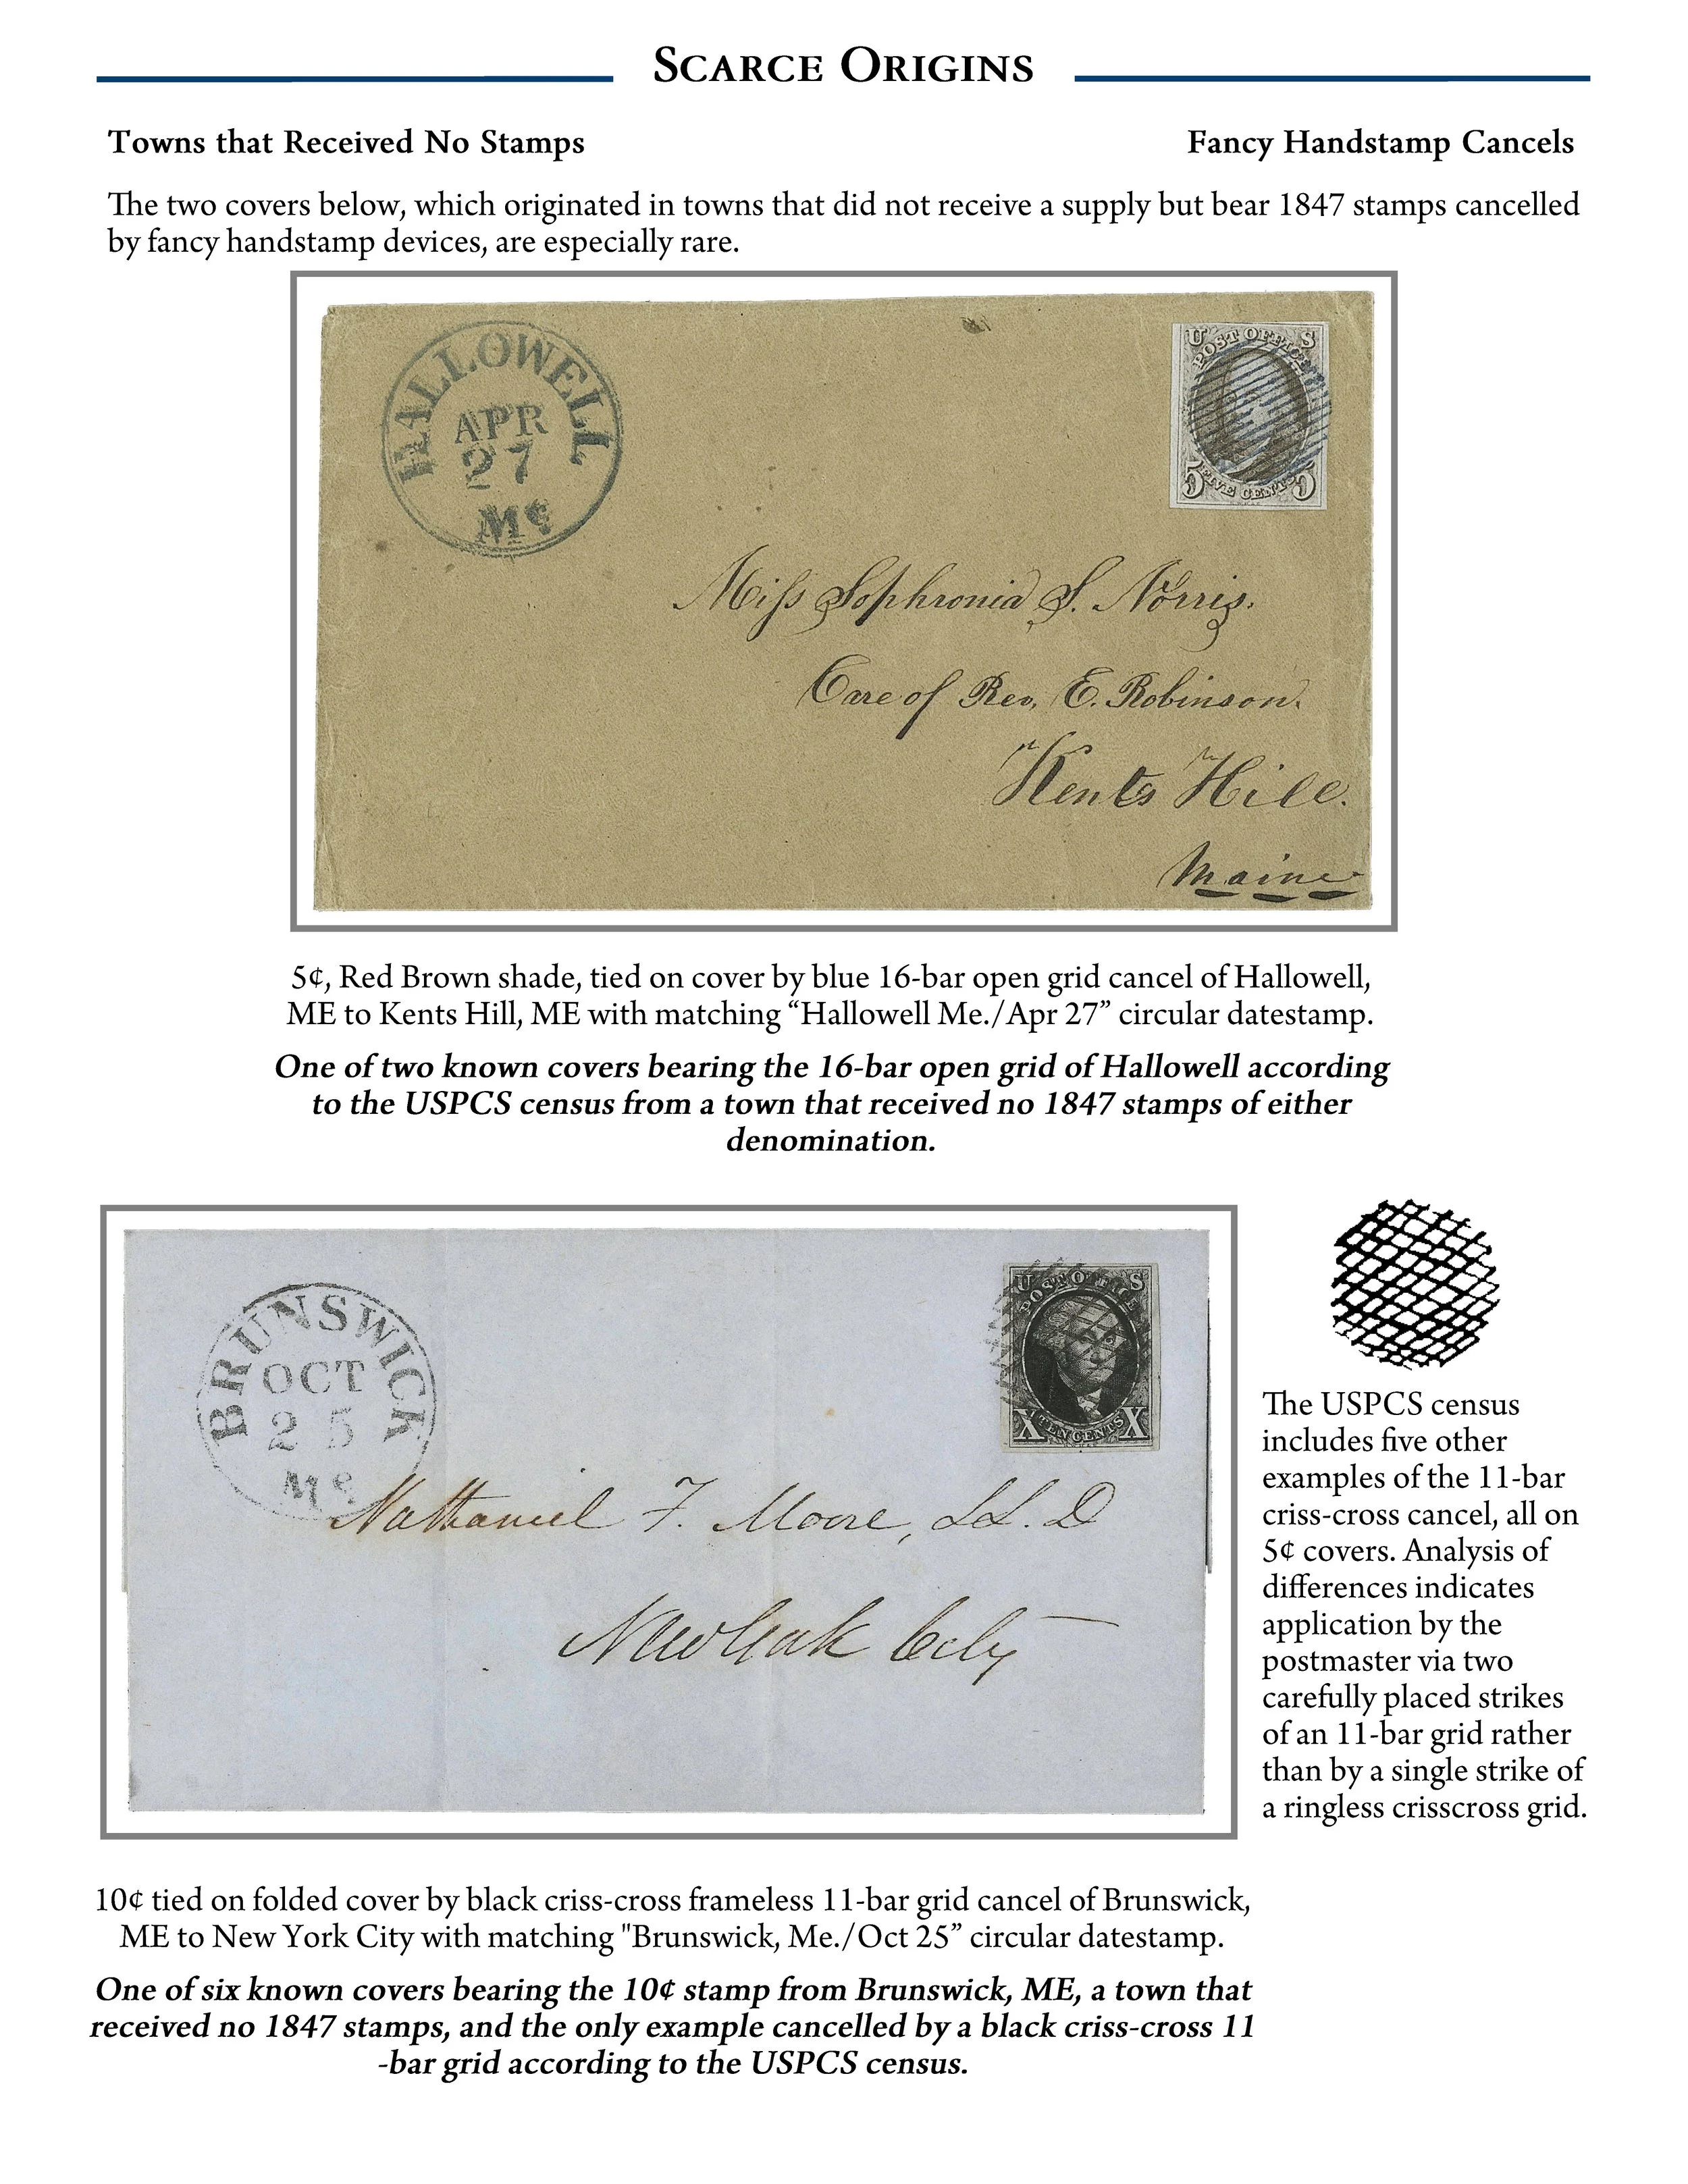 Scarce Origins
Towns that Received No Stamps
Fancy Handstamp Cancels
The two covers below, which originated in towns that did not receive a supply but bear 1847 stamps cancelled
by fancy handstamp devices, are especially rare.
HALLOWELL
APR
27
Me
U S
POST OFFICE
5 FIVE CENTS 5
Miss Sophronia S. Norris.
Care of Rev. E. Robinson.
Kents Hill.
Maine
5¢, Red Brown shade, tied on cover by blue 16-bar open grid cancel of Hallowell,
ME to Kents Hill, ME with matching “Hallowell Me./Apr 27” circular datestamp.
One of two known covers bearing the 16-bar open grid of Hallowell according
to the USPCS census from a town that received no 1847 stamps of either
denomination.
BRUNSWICK
OCT
25
Me
U S
POST OFFICE
X TEN CENTS X
Nathaniel F. Moore, LL. D
New York City
The USPCS census
includes five other
examples of the 11-bar
criss-cross cancel, all on
5¢ covers. Analysis of
differences indicates
application by the
postmaster via two
carefully placed strikes
of an 11-bar grid rather
than by a single strike of
a ringless crisscross grid.
10¢ tied on folded cover by black criss-cross frameless 11-bar grid cancel of Brunswick,
ME to New York City with matching "Brunswick, Me./Oct 25” circular datestamp.
One of six known covers bearing the 10¢ stamp from Brunswick, ME, a town that
received no 1847 stamps, and the only example cancelled by a black criss-cross 11
-bar grid according to the USPCS census.